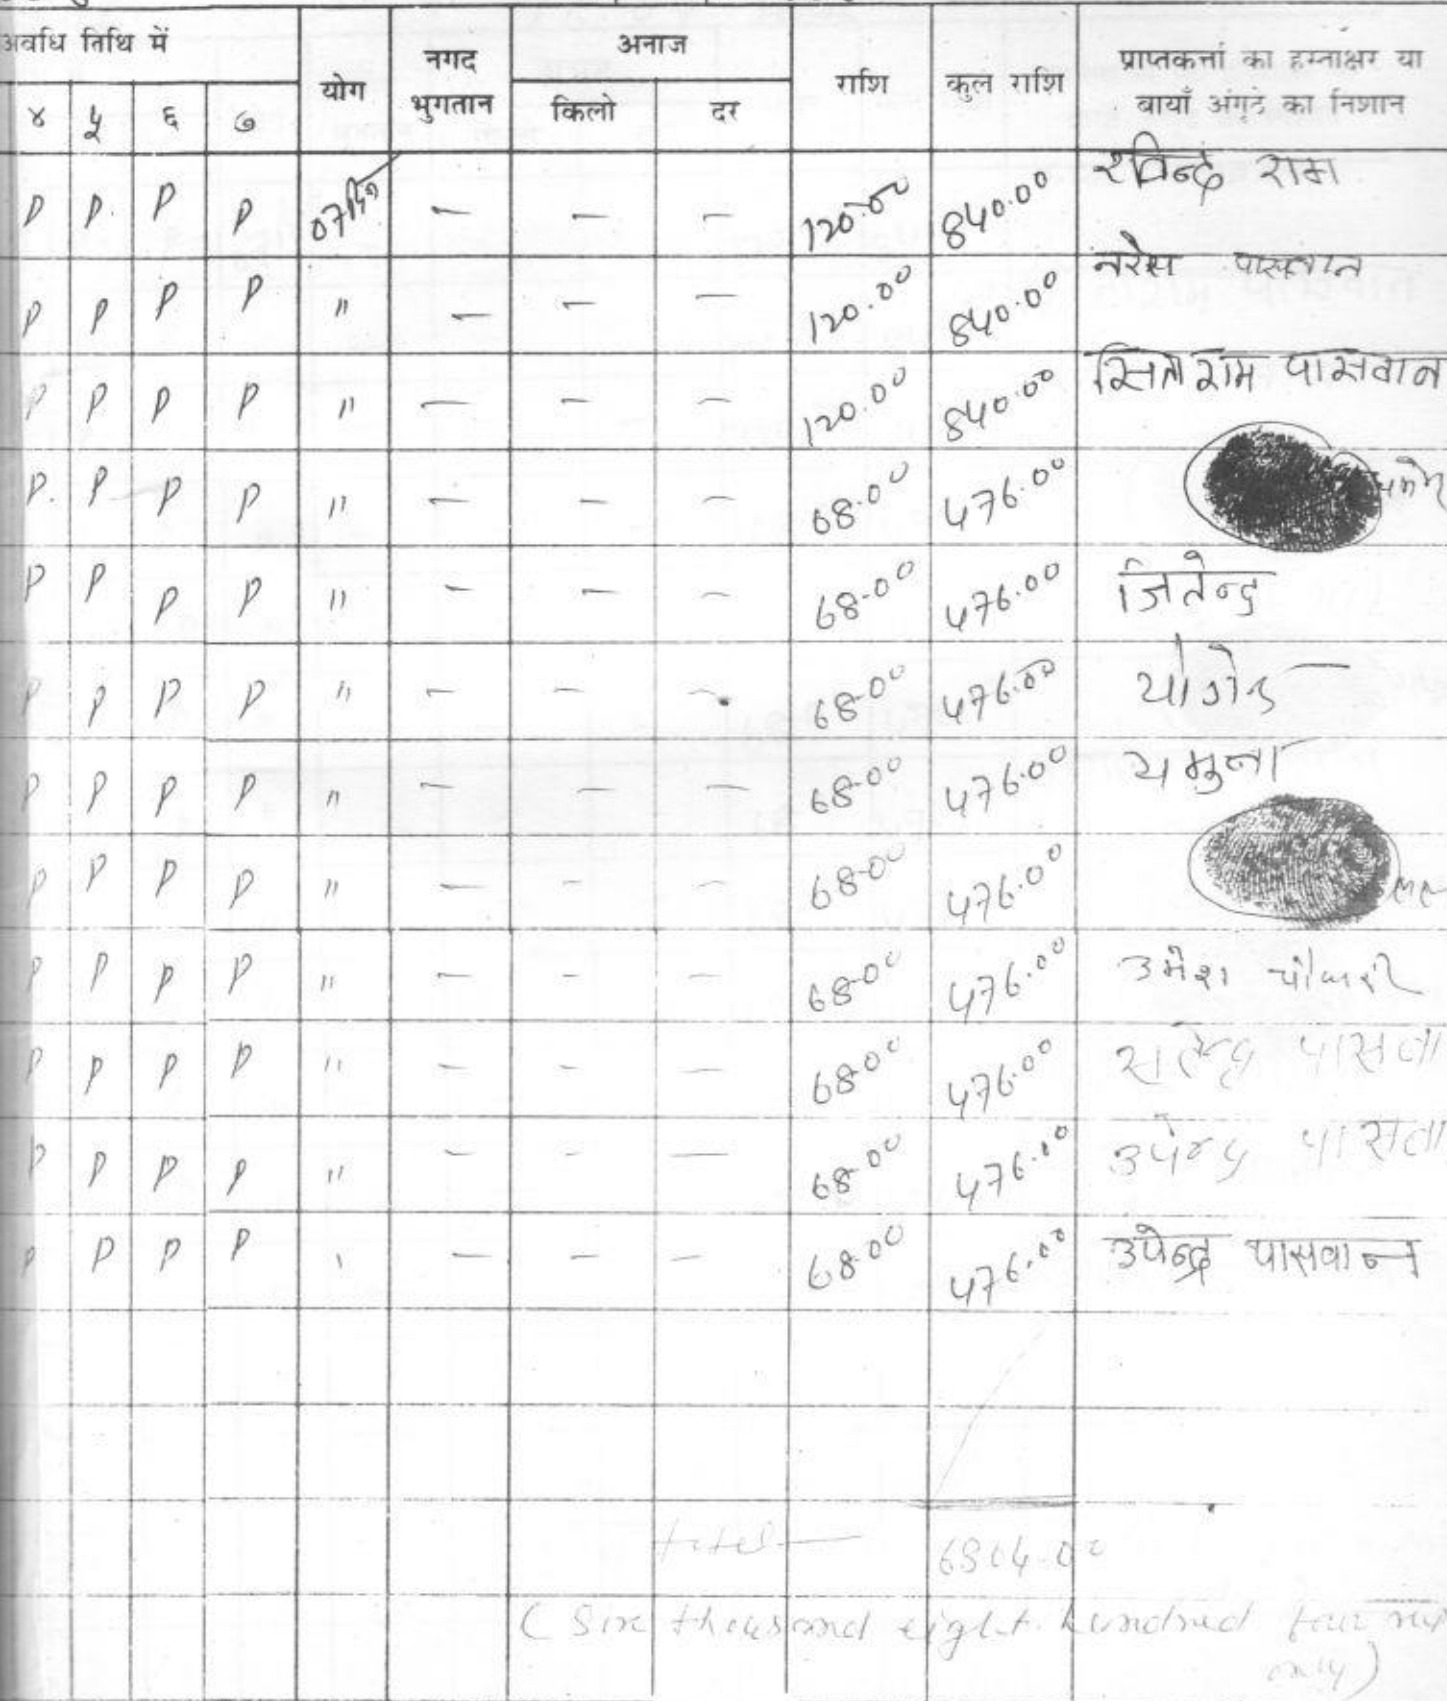 अवधि तिथि में योग नगद भुगतान अनाज राशि कुल राशि प्राप्तकर्त्ता का हस्ताक्षर या बायाँ अंगूठे का निशान
४ ५ ६ ७ किलो दर
P P. P P 07 — — — 120.00 840.00 रविन्द्र राम
P P P P " — — — 120.00 840.00 नरेस पासवान
P P P P " — — — 120.00 840.00 सितोराम पासवान
P. P P P " — — — 68.00 476.00
P P P P " — — — 68-00 476.00 जितेन्द्र
P P P P " — — — 68-00 476.00 योगेन्द्र
P P P P " — — — 68-00 476.00 यमुना
P P P P " — — — 68-00 476.00
P P P P " — — — 68-00 476.00 उमेश चौधरी
P P P P " — — — 68-00 476.00 पासवा
P P P P " — — — 68-00 476.00 उपेन्द्र पासवा
P P P P ' — — — 68-00 476.00 उपेन्द्र पासवान
total — 6804.00
( Six thousand eight hundred four
only )